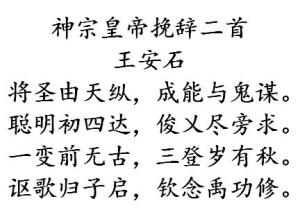 神宗皇帝挽辞二首
王安石
将圣由天纵，成能与鬼谋。
聪明初四达，俊乂尽旁求。
一变前无古，三登岁有秋。
讴歌归子启，钦念禹功修。